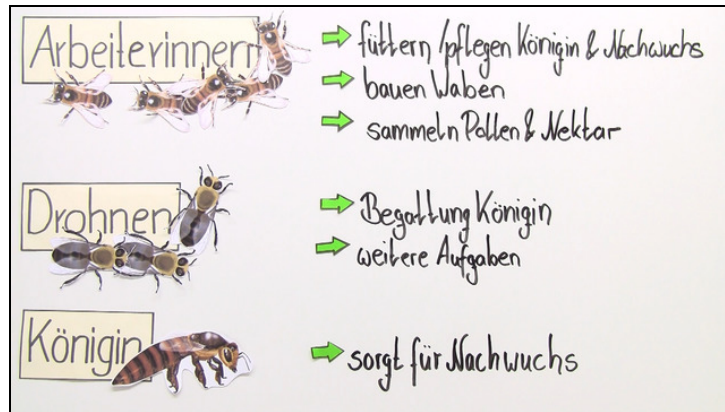 Arbeiterinnen
füttern/pflegen Königin & Nachwuchs
bauen Waben
sammeln Pollen & Nektar
Drohnen
Begattung Königin
weitere Aufgaben
Königin
sorgt für Nachwuchs